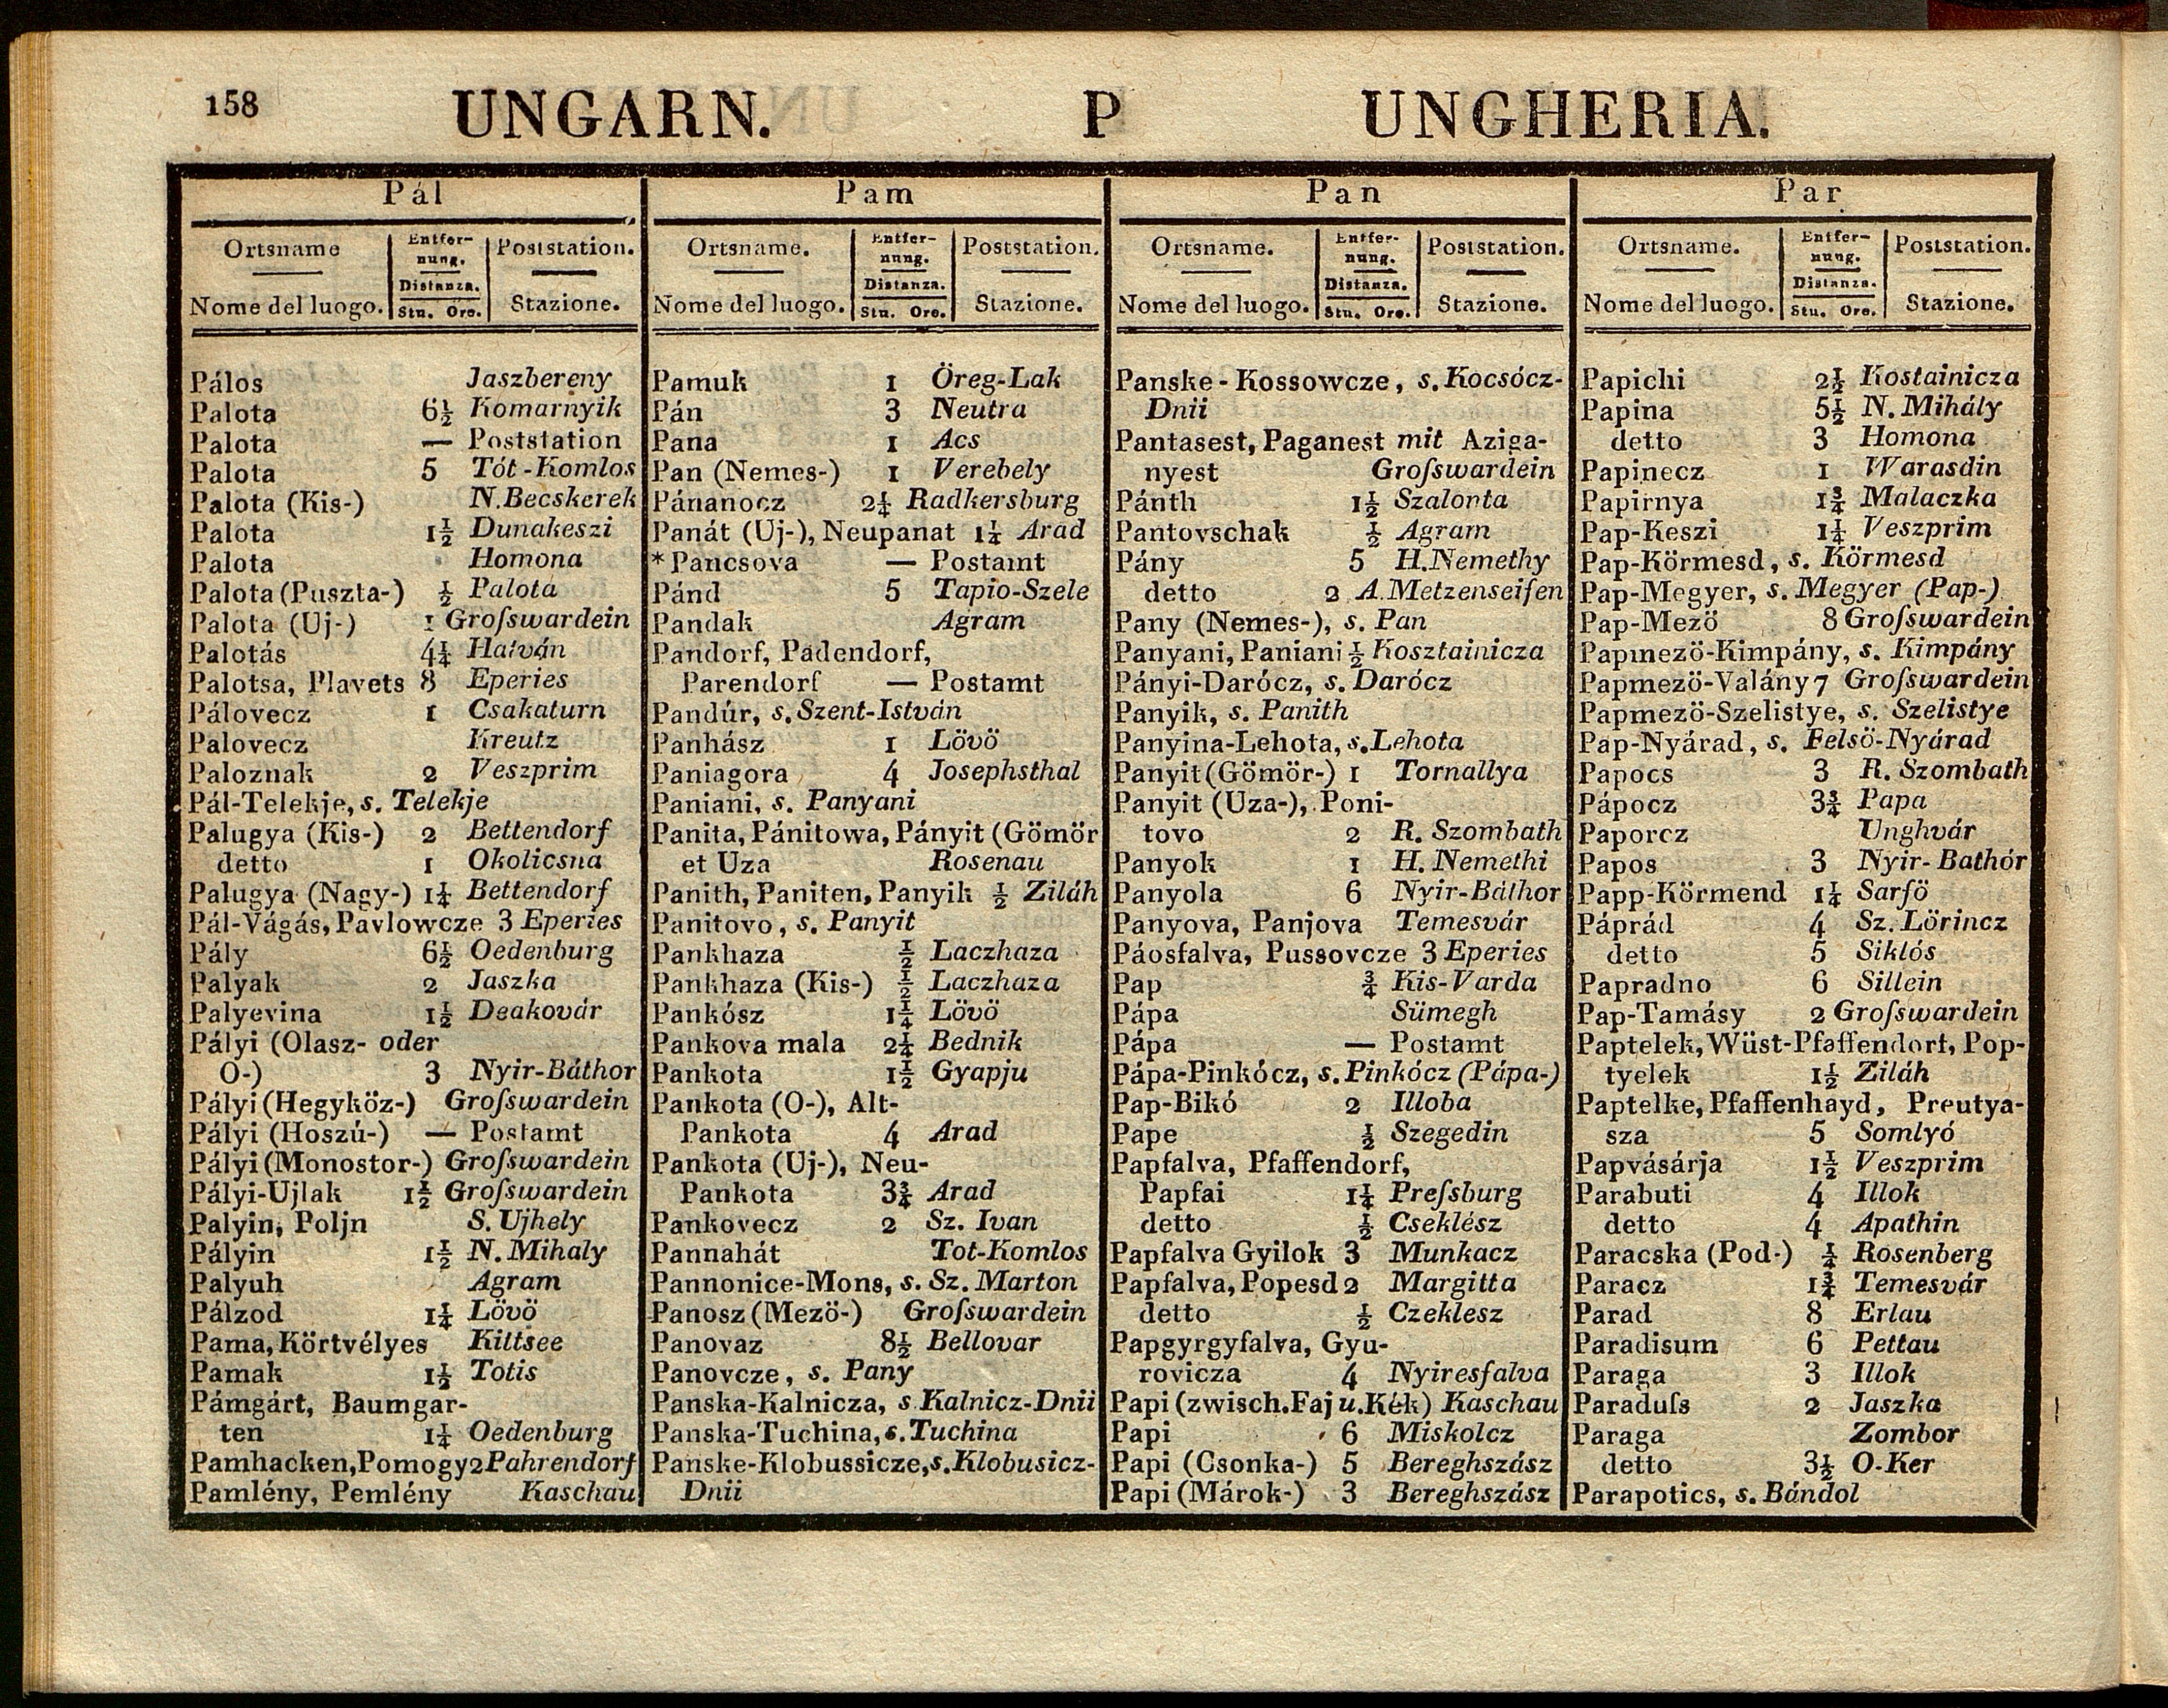 158
UNGARN. P UNGHERIA.
Pál
Ortsname
Entfer-
nung.
Poststation.
Nome del luogo.
Distanza.
Stu. Ore.
Stazione.
Pálos Jaszbereny
Palota 6½ Komarnyik
Palota — Poststation
Palota 5 Tót-Komlos
Palota (Kis-) N.Becskerek
Palota 1½ Dunakeszi
Palota Homona
Palota (Puszta-) ½ Palota
Palota (Uj-) 1 Groſswardein
Palotás 4¼ Hatván
Palotsa, Plavets 8 Eperies
Pálovecz 1 Csakaturn
Palovecz Kreutz
Paloznak 2 Veszprim
Pál-Telekje, s. Telekje
Palugya (Kis-) 2 Bettendorf
detto 1 Okolicsna
Palugya (Nagy-) 1¼ Bettendorf
Pál-Vágás, Pavlowcze 3 Eperies
Pály 6½ Oedenburg
Palyak 2 Jaszka
Palyevina 1½ Deakovár
Pályi (Olasz- oder
O-) 3 Nyir-Báthor
Pályi (Hegyköz-) Groſswardein
Pályi (Hoszú-) — Postamt
Pályi (Monostor-) Groſswardein
Pályi-Ujlak 1½ Groſswardein
Palyin, Poljn S. Ujhely
Pályin 1½ N. Mihaly
Palyuh Agram
Pálzod 1¼ Lövö
Pama, Körtvélyes Kittsee
Pamak 1½ Totis
Pámgárt, Baumgar-
ten 1¼ Oedenburg
Pamhacken, Pomogy 2 Pahrendorf
Pamlény, Pemlény Kaschau
Pam
Ortsname.
Entfer-
nung.
Poststation.
Nome del luogo.
Distanza.
Stu. Ore.
Stazione.
Pamuk 1 Öreg-Lak
Pán 3 Neutra
Pana 1 Acs
Pan (Nemes-) 1 Verebely
Pánanocz 2¼ Radkersburg
Panát (Uj-), Neupanat 1¼ Arad
*Pancsova — Postamt
Pánd 5 Tapio-Szele
Pandak Agram
Pandorf, Padendorf,
Parendorf — Postamt
Pandúr, s. Szent-István
Panhász 1 Lövö
Paniagora 4 Josephsthal
Paniani, s. Panyani
Panita, Pánitowa, Pányit (Gömör
et Uza Rosenau
Panith, Paniten, Panyik ½ Ziláh
Panitovo, s. Panyit
Pankhaza ½ Laczhaza
Pankhaza (Kis-) ½ Laczhaza
Pankósz 1¼ Lövö
Pankova mala 2¼ Bednik
Pankota 1½ Gyapju
Pankota (O-), Alt-
Pankota 4 Arad
Pankota (Uj-), Neu-
Pankota 3¾ Arad
Pankovecz 2 Sz. Ivan
Pannahát Tot-Komlos
Pannonice-Mons, s. Sz. Marton
Panosz (Mezö-) Groſswardein
Panovaz 8½ Bellovar
Panovcze, s. Pany
Panska-Kalnicza, s Kalnicz-Dnii
Panska-Tuchina, s. Tuchina
Panske-Klobussicze, s. Klobusicz-
Dnii
Pan
Ortsname.
Entfer-
nung.
Poststation.
Nome del luogo.
Distanza.
Stu. Ore.
Stazione.
Panske-Kossowcze, s. Kocsócz-
Dnii
Pantasest, Paganest mit Aziga-
nyest Groſswardein
Pánth 1½ Szalonta
Pantovschak ½ Agram
Pány 5 H.Nemethy
detto 2 A.Metzenseifen
Pany (Nemes-), s. Pan
Panyani, Paniani ½ Kosztainicza
Pányi-Darócz, s. Darócz
Panyik, s. Panith
Panyina-Lehota, s. Lehota
Panyit (Gömör-) 1 Tornallya
Panyit (Uza-), Poni-
tovo 2 R. Szombath
Panyok 1 H. Nemethi
Panyola 6 Nyir-Báthor
Panyova, Panjova Temesvár
Páosfalva, Pussovcze 3 Eperies
Pap ¾ Kis-Varda
Pápa Sümegh
Pápa — Postamt
Pápa-Pinkócz, s. Pinkócz (Pápa-)
Pap-Bikó 2 Illoba
Pape ½ Szegedin
Papfalva, Pfaffendorf,
Papfai 1¼ Preſsburg
detto ½ Cseklész
Papfalva Gyilok 3 Munkacz
Papfalva, Popesd 2 Margitta
detto ½ Czeklesz
Papgyrgyfalva, Gyu-
rovicza 4 Nyiresfalva
Papi (zwisch. Faj u. Kék) Kaschau
Papi 6 Miskolcz
Papi (Csonka-) 5 Bereghszász
Papi (Márok-) 3 Bereghszász
Par
Ortsname.
Entfer-
nung.
Poststation.
Nome del luogo.
Distanza.
Stu. Ore.
Stazione.
Papichi 2½ Kostainicza
Papina 5½ N. Mihály
detto 3 Homona
Papinecz 1 Warasdin
Papirnya 1¾ Malaczka
Pap-Keszi 1¼ Veszprim
Pap-Körmesd, s. Körmesd
Pap-Megyer, s. Megyer (Pap-)
Pap-Mezö 8 Groſswardein
Papmezö-Kimpány, s. Kimpány
Papmezö-Valány 7 Groſswardein
Papmezö-Szelistye, s. Szelistye
Pap-Nyárad, s. Felsö-Nyárad
Papocs 3 R. Szombath
Pápocz 3¾ Papa
Paporcz Unghvár
Papos 3 Nyir-Bathór
Papp-Körmend 1¼ Sarſö
Páprád 4 Sz. Lörincz
detto 5 Siklós
Papradno 6 Sillein
Pap-Tamásy 2 Groſswardein
Paptelek, Wüst-Pfaffendorf, Pop-
tyelek 1½ Ziláh
Paptelke, Pfaffenhayd, Preutya-
sza 5 Somlyó
Papvásárja 1½ Veszprim
Parabuti 4 Illok
detto 4 Apathin
Paracska (Pod-) ¼ Rosenberg
Paracz 1¾ Temesvár
Parad 8 Erlau
Paradisum 6 Pettau
Paraga 3 Illok
Paraduſs 2 Jaszka
Paraga Zombor
detto 3½ O-Ker
Parapotics, s. Bándol